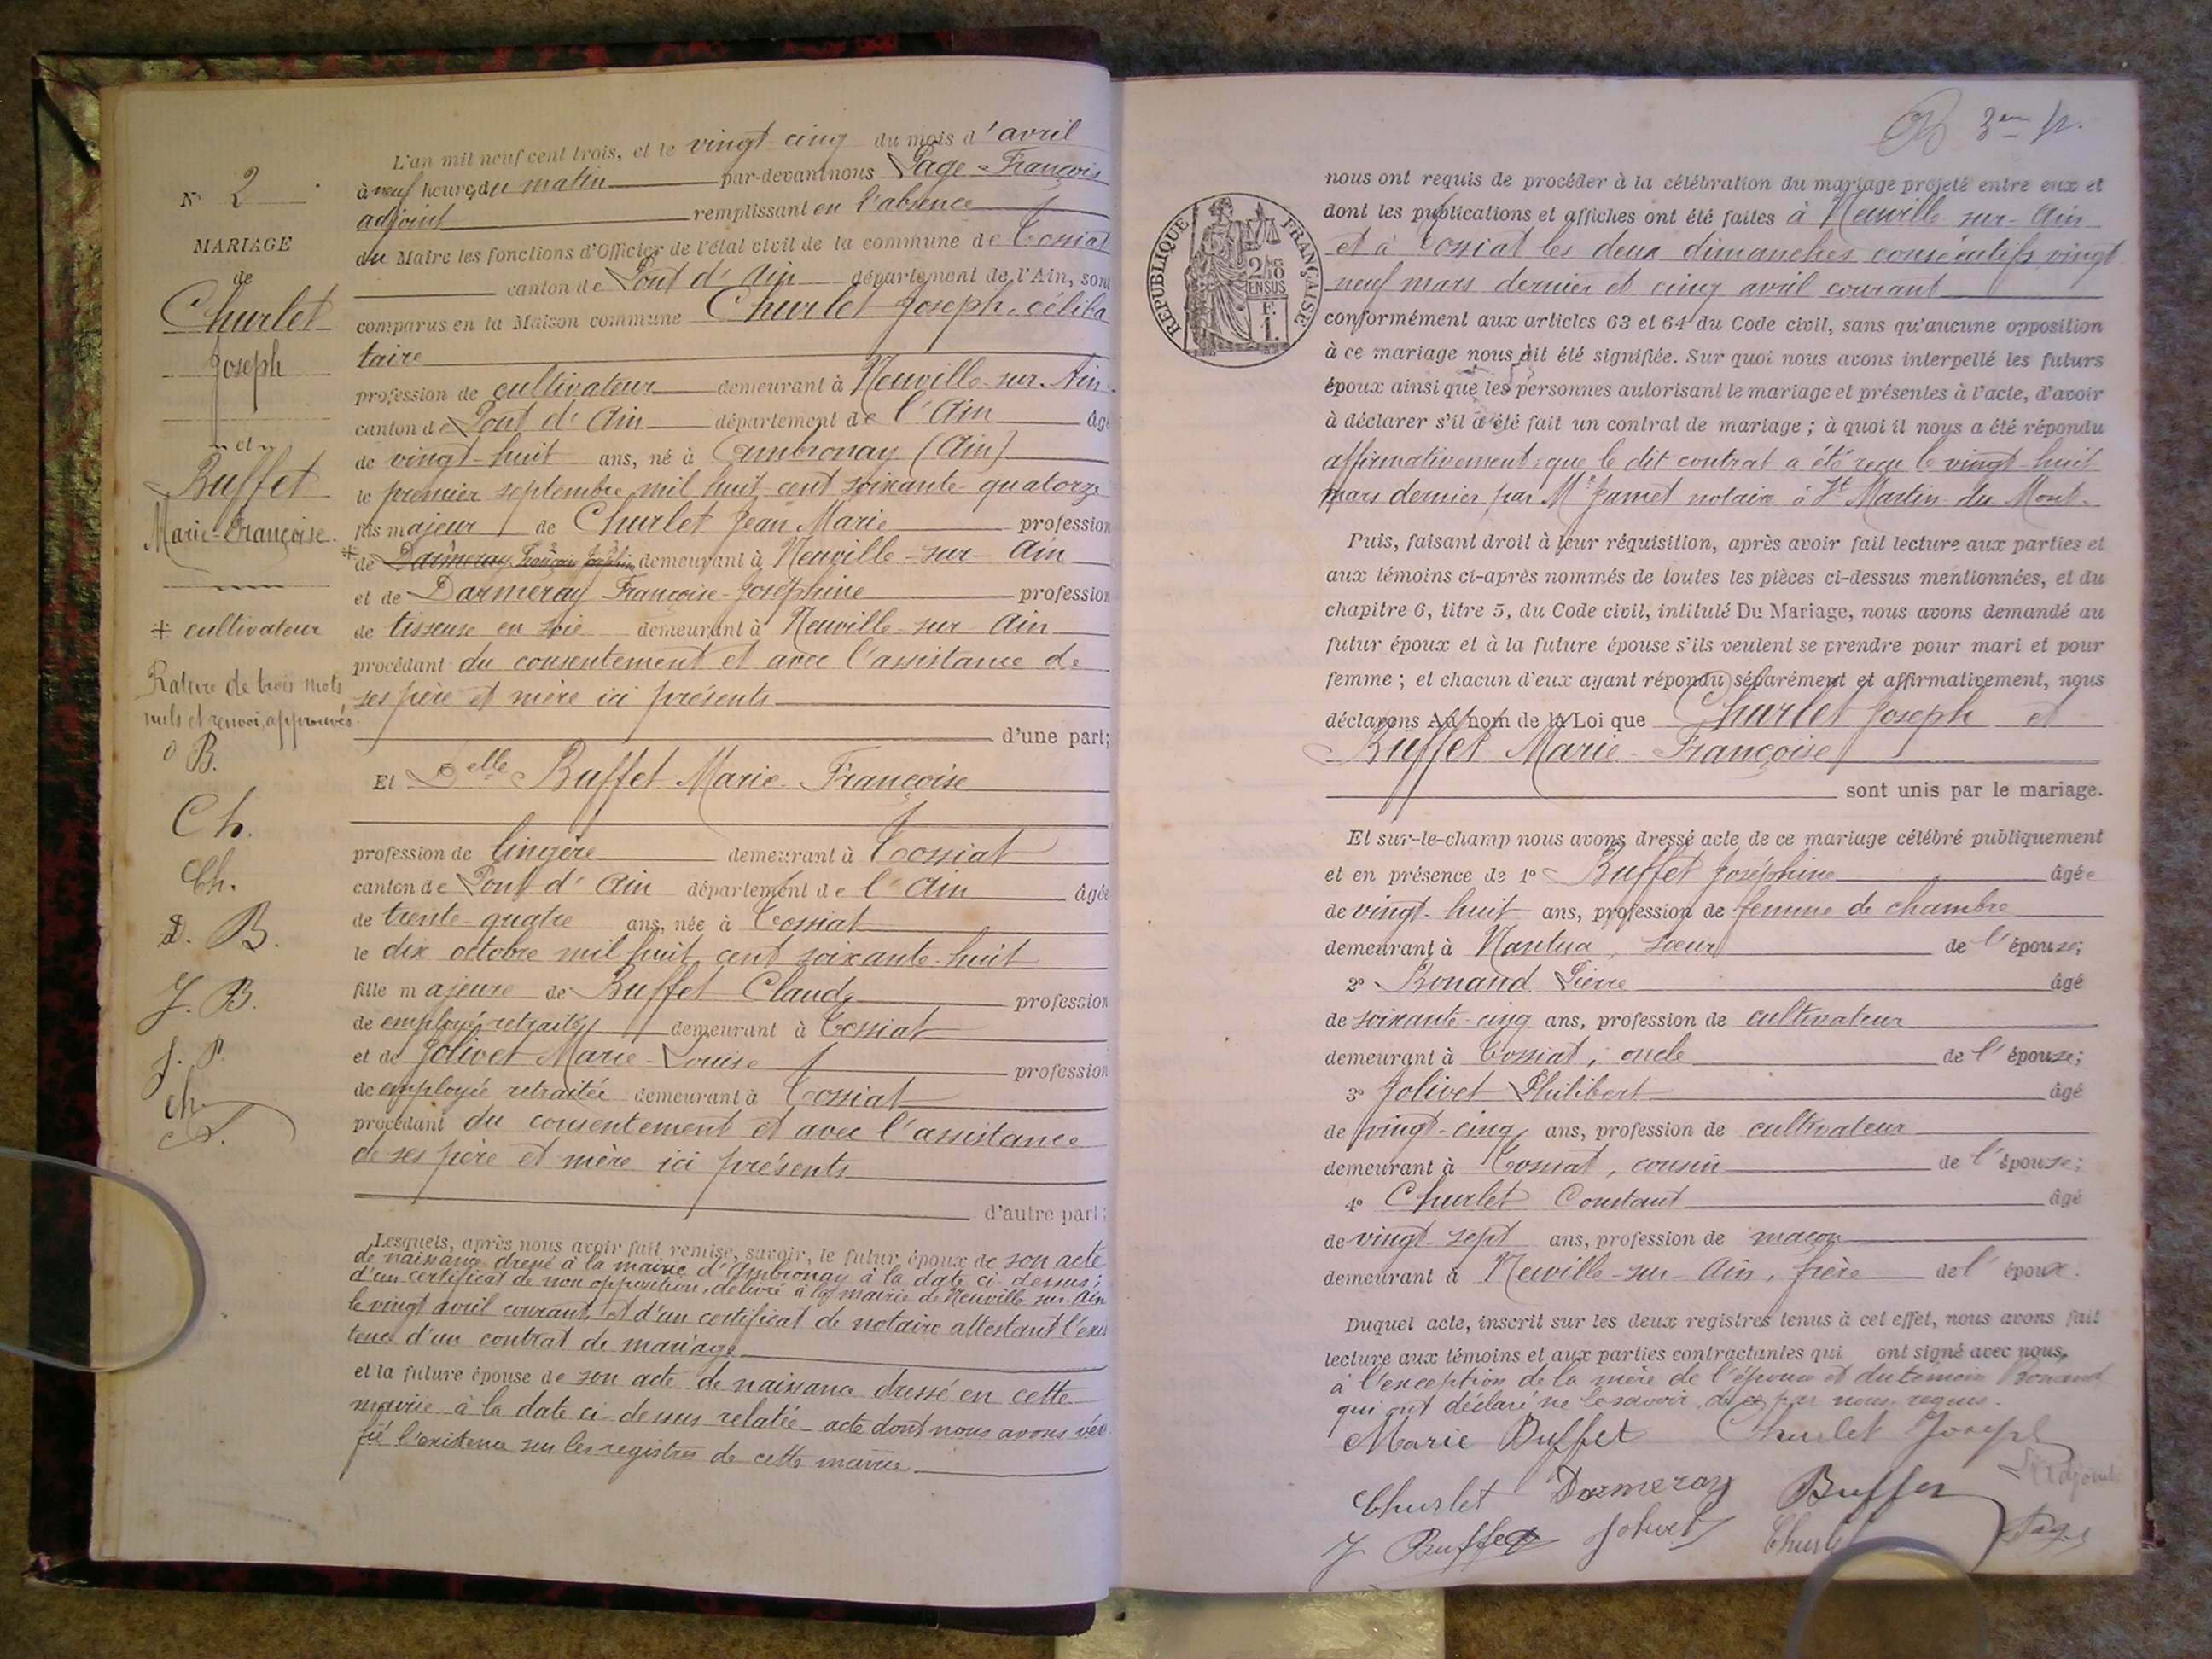 N° 2
MARIAGE
de
Churlet
Joseph
et
Buffet
Marie-Françoise.
* cultivateur
Rature de trois mots
nuls et renvoi, approuvés.
B.
Ch.
Ch.
D. B.
J. B.
J. P.
ch
L'an mil neuf cent trois, et le vingt-cinq du mois d'avril
à neuf heures du matin par-devant nous Page-François
adjoint remplissant en l'absence
du Maire les fonctions d'Officier de l'état civil de la commune de Tossiat
canton de Pont d'Ain département de l'Ain, sont
comparus en la Maison commune Churlet Joseph, céliba
taire
profession de cultivateur demeurant à Neuville-sur-Ain
canton de Pont d'Ain département de l'Ain âgé
de vingt-huit ans, né à Ambronay (Ain)
le premier septembre mil huit cent soixante-quatorze
fils majeur de Churlet Jean Marie profession
* de Darmeray Françoise Joséphine demeurant à Neuville-sur-Ain
et de Darmeray Françoise-Joséphine profession
de tisseuse en soie demeurant à Neuville-sur-Ain
procédant du consentement et avec l'assistance de
ses père et mère ici présents
d'une part;
Et Delle Buffet Marie-Françoise
profession de lingère demeurant à Tossiat
canton de Pont d'Ain département de l'Ain âgée
de trente-quatre ans, née à Tossiat
le dix octobre mil huit cent soixante-huit
fille majeure de Buffet Claude profession
de employé retraité demeurant à Tossiat
et de Jolivet Marie-Louise profession
de employée retraitée demeurant à Tossiat
procédant du consentement et avec l'assistance
de ses père et mère ici présents
d'autre part;
Lesquels, après nous avoir fait remise, savoir, le futur époux de son acte
de naissance dressé à la mairie d'Ambronay à la date ci-dessus;
d'un certificat de non opposition, délivré à la mairie de Neuville-sur-Ain
le vingt avril courant, et d'un certificat de notaire attestant l'exis
tence d'un contrat de mariage
et la future épouse de son acte de naissance dressé en cette
mairie à la date ci-dessus relatée - acte dont nous avons véri
fié l'existence sur les registres de cette mairie
3em
RÉPUBLIQUE FRANÇAISE
2/10
EN SUS
F.
1.
nous ont requis de procéder à la célébration du mariage projeté entre eux et
dont les publications et affiches ont été faites à Neuville-sur-Ain
et à Tossiat les deux dimanches consécutifs vingt
neuf mars dernier et cinq avril courant
conformément aux articles 63 et 64 du Code civil, sans qu'aucune opposition
à ce mariage nous ait été signifiée. Sur quoi nous avons interpellé les futurs
époux ainsi que les personnes autorisant le mariage et présentes à l'acte, d'avoir
à déclarer s'il a été fait un contrat de mariage ; à quoi il nous a été répondu
affirmativement : que le dit contrat a été reçu le vingt-huit
mars dernier par Me Jamet notaire à St Martin-du-Mont.
Puis, faisant droit à leur réquisition, après avoir fait lecture aux parties et
aux témoins ci-après nommés de toutes les pièces ci-dessus mentionnées, et du
chapitre 6, titre 5, du Code civil, intitulé Du Mariage, nous avons demandé au
futur époux et à la future épouse s'ils veulent se prendre pour mari et pour
femme ; et chacun d'eux ayant répondu séparément et affirmativement, nous
déclarons Au nom de la Loi que Churlet Joseph et
Buffet Marie-Françoise
sont unis par le mariage.
Et sur-le-champ nous avons dressé acte de ce mariage célébré publiquement
et en présence de 1° Buffet Joséphine âgée
de vingt-huit ans, profession de femme de chambre
demeurant à Nantua, soeur de l'épouse;
2° Bonand Pierre âgé
de soixante-cinq ans, profession de cultivateur
demeurant à Tossiat, oncle de l'épouse;
3° Jolivet Philibert âgé
de vingt-cinq ans, profession de cultivateur
demeurant à Tossiat, cousin de l'épouse;
4° Churlet Constant âgé
de vingt-sept ans, profession de maçon
demeurant à Neuville-sur-Ain, frère de l'époux.
Duquel acte, inscrit sur les deux registres tenus à cet effet, nous avons fait
lecture aux témoins et aux parties contractantes qui ont signé avec nous,
à l'exception de la mère de l'épouse et du témoin Bonand
qui ont déclaré ne le savoir, de ce par nous requis.
Marie Buffet Churlet Joseph
Churlet Darmeray Buffet L'adjoint
J Buffet Jolivet Churlet Page